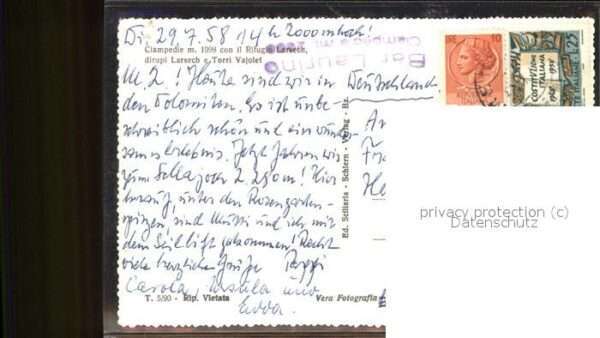 Di. 29.7.58 14 h 2000 m hoch!
Ciampedie m. 1998 con il Rifugio
dirupi Larsech e Torri Vajolet
Bar Laurino
Ciampedie m. 2000
M. L! Heute sind wir in Deutschland
den Dolomiten. Es ist unbe-
schreiblich schön und ein wunder-
sames Erlebnis. Jetzt fahren wir
zum Sellajoch 2.230 m! Hier
herauf, unter den Rosengarten-
spitzen, sind Mutti und ich mit
dem Seillift gekommen! Recht
viele herzliche Grüße Pappi
Carola, Ursula und
Edda.
T. 5/90 - Rip. Vietata
Vera Fotografia
Ed. Sciliaria - Schlern - Verlag - Bz.
10
COSTITUZIONE
ITALIANA
1948 1958
L.25
POSTE ITALIANE
privacy protection (c)
Datenschutz